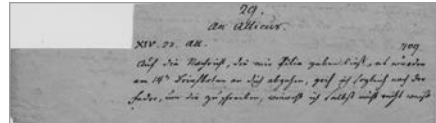 29.
An Atticus.
XIV. 22. Att. 709.
Auf die Nachricht, die mir Pilia geben ließ, es würden
am 14ⁿ Briefboten an dich abgehen, griff ich sogleich nach der
Feder, um dir zu schreiben, wenn ich selbst nicht recht weiß